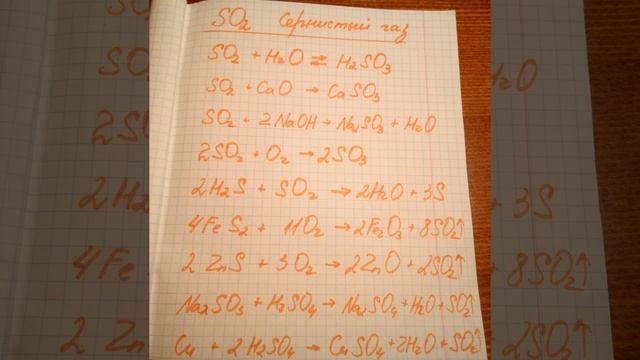 SO₂ Сернистый газ
SO₂ + H₂O ⇌ H₂SO₃
SO₂ + CaO → CaSO₃
SO₂ + 2NaOH → Na₂SO₃ + H₂O
2SO₂ + O₂ → 2SO₃
2H₂S + SO₂ → 2H₂O + 3S
4FeS₂ + 11O₂ → 2Fe₂O₃ + 8SO₂↑
2ZnS + 3O₂ → 2ZnO + 2SO₂↑
Na₂SO₃ + H₂SO₄ → Na₂SO₄ + H₂O + SO₂↑
Cu + 2H₂SO₄ → CuSO₄ + 2H₂O + SO₂↑